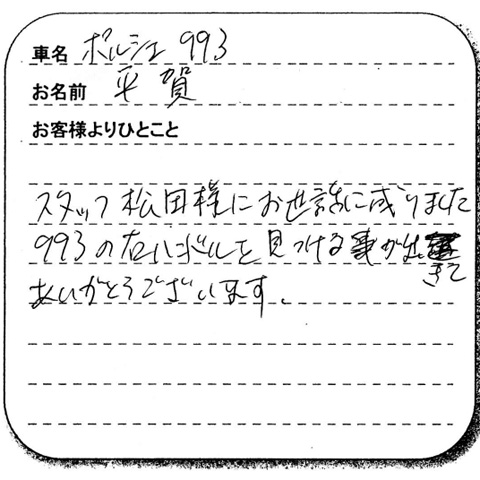 車名 ポルシェ 993
お名前 平賀
お客様よりひとこと
スタッフ松田様にお世話に成りました
993の右ハンドルを見つける事が出きて
ありがとうございます。